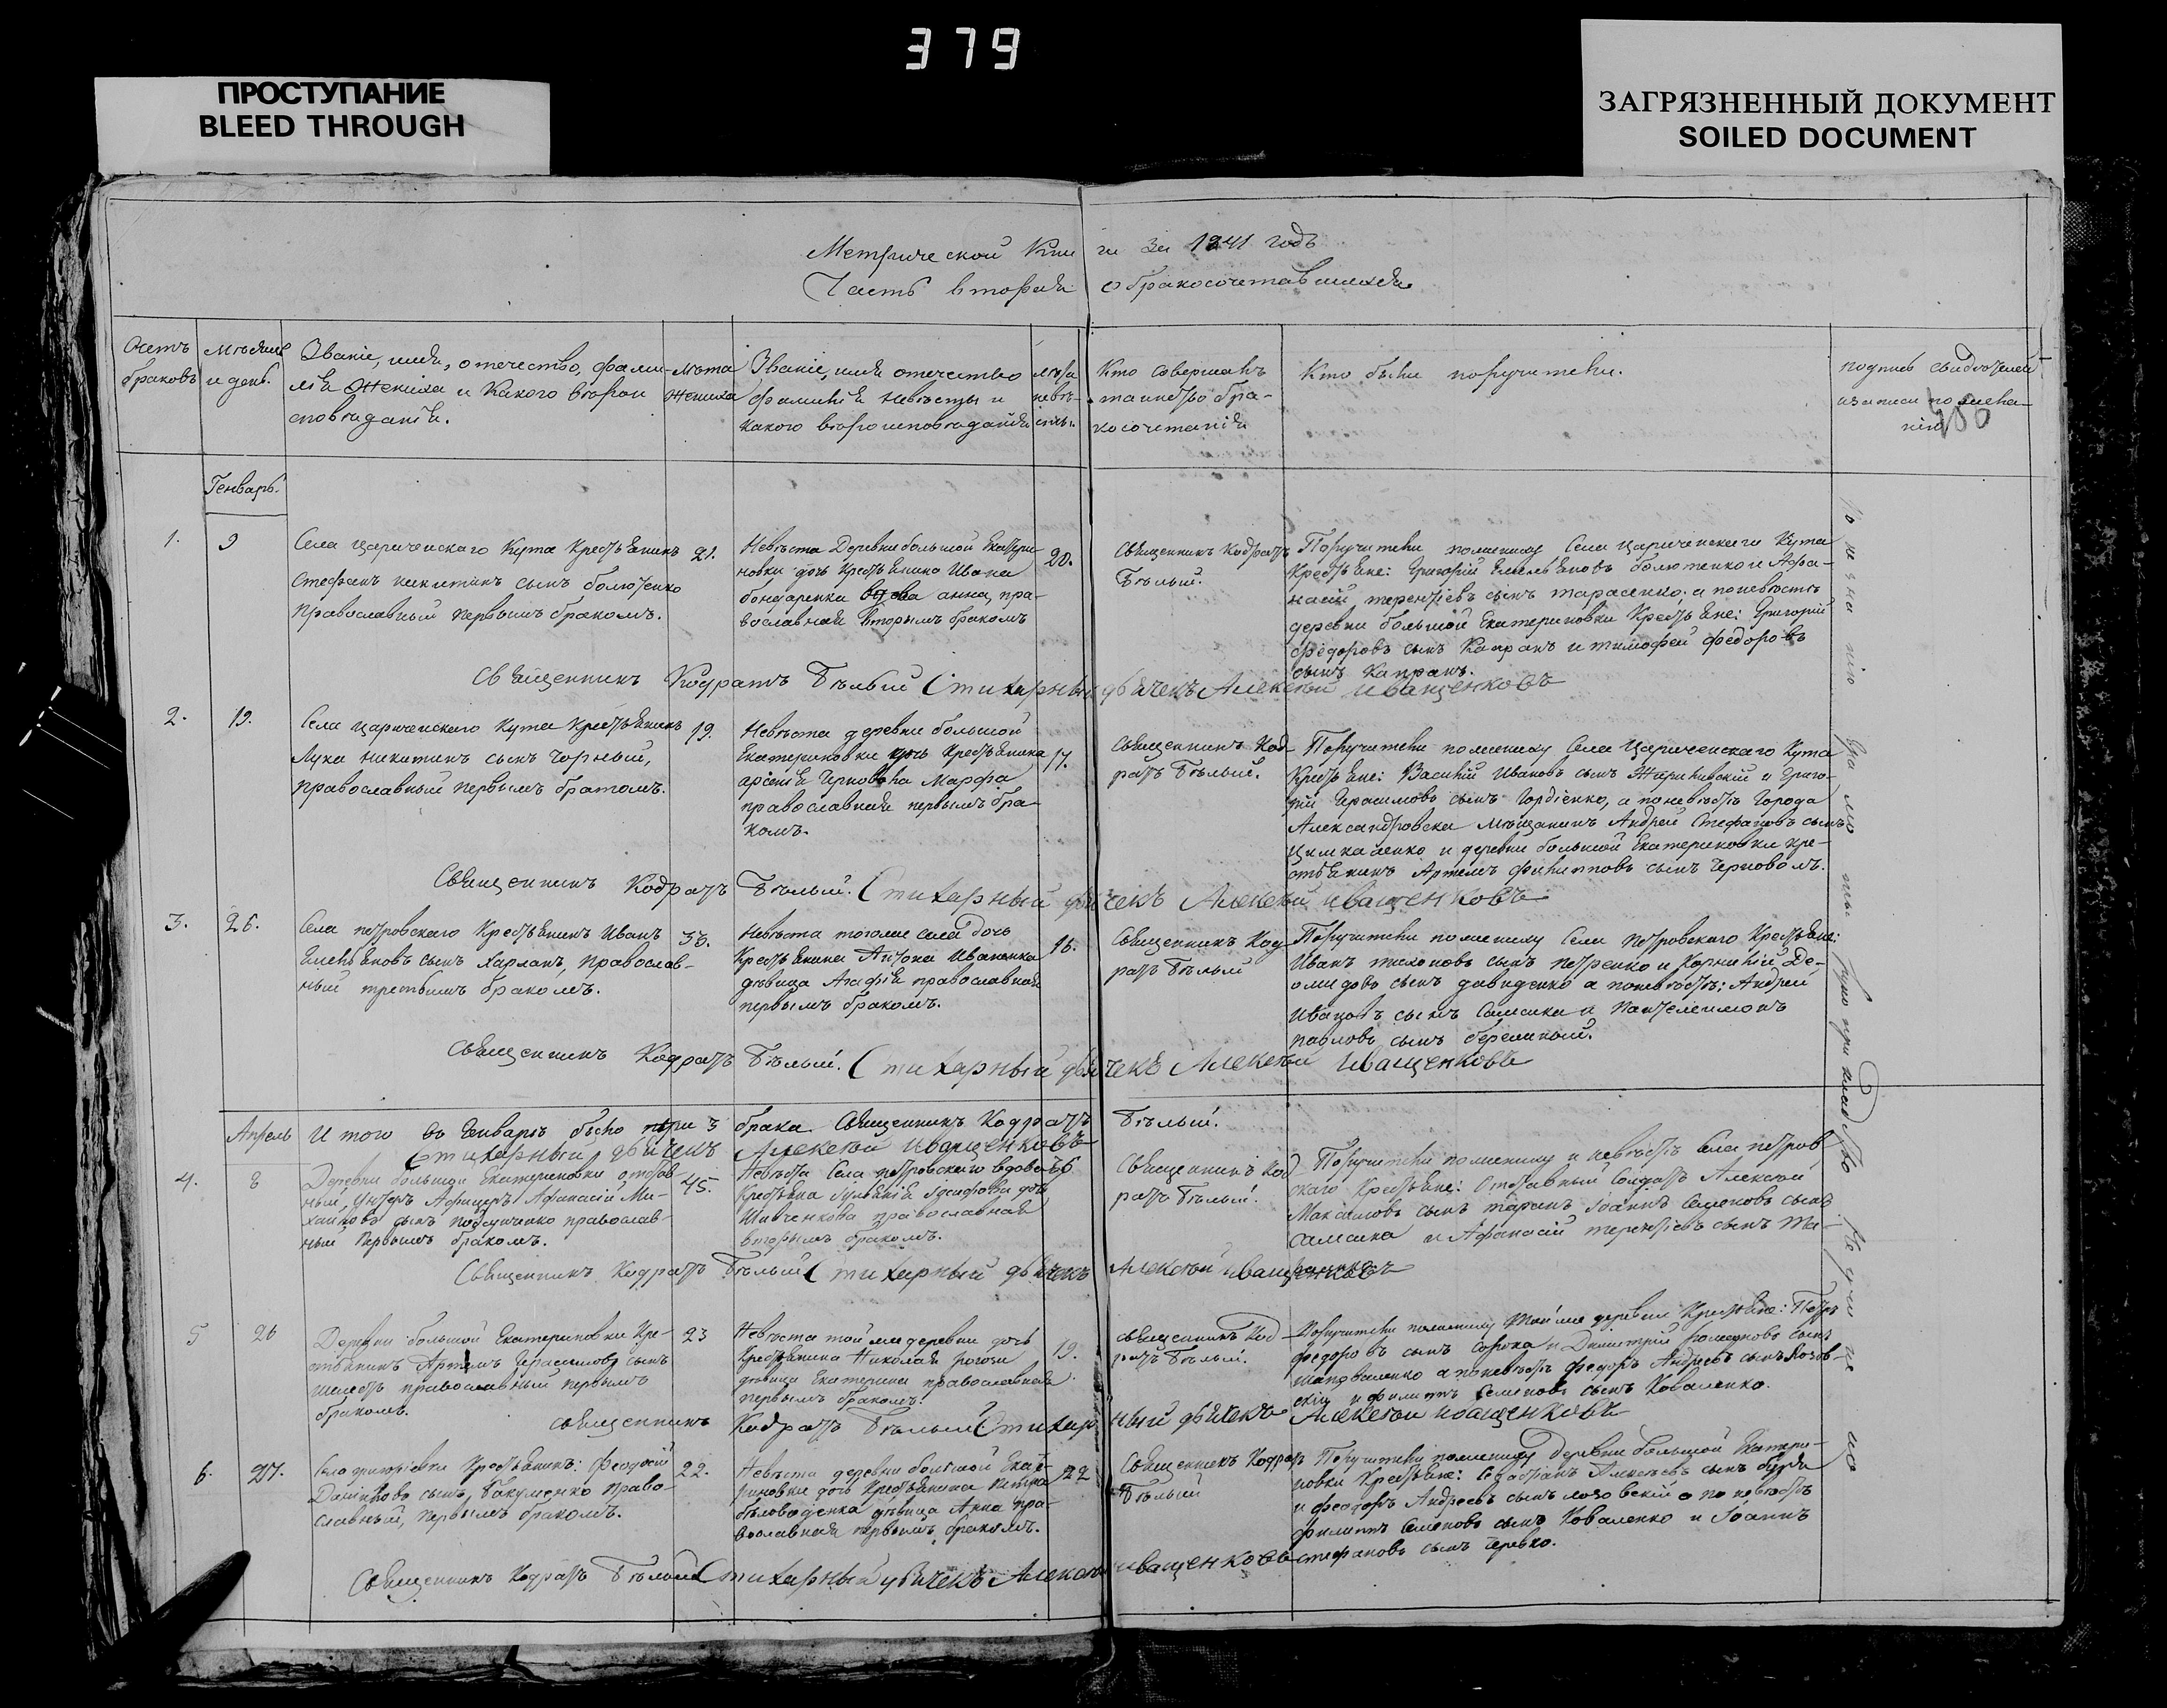 379
ПРОСТУПАНИЕ
BLEED THROUGH
ЗАГРЯЗНЕННЫЙ ДОКУМЕНТ
SOILED DOCUMENT
Метрической Кни ги За 1841 годъ
Часть вторая о бракосочетавшихся
Счетъ
браковъ
Мѣсяцъ
и день.
Званіе, имя, отечество, фами-
лія Жениха и Какого вѣрои
сповѣданія.
лѣта
жениха
Званіе, имя отечество
фамилія Невѣсты и
какого вѣроисповѣданія
лѣта
невѣ-
сты.
Кто совершалъ
таинство бра-
косочетанія
Кто были поручители.
подпись свидѣтелей
записи по жела-
нію
380
Генварь.
1.
9
Села Цариченскаго Кута Крестьянинъ
Стефанъ никитинъ сынъ болютенко
Православный Первымъ бракомъ.
21.
Невѣста Деревни большой Екатери
новки дочь Крестьянина Ивана
бондаренка вдова анна, пра-
вославная вторымъ бракомъ
20.
Священникъ Кодратъ
Бѣлый.
Поручители пожениху Села Цариченскаго Кута
Крестьяне: Григорій Емельяновъ болютенко и Афа-
насій терентіевъ сынъ тарасенко; а поневѣстѣ
деревни большой Екатериновки Крестьяне: Григорій
федоровъ сынъ Капранъ и тимофей федоровъ
сынъ Капранъ.
Священникъ Кодратъ Бѣлый Стихарный дьячекъ Алексѣй Иващенковъ
2.
19.
Села Цариченскаго Кута Крестьянинъ
Лука никитинъ сынъ Чорный,
православный первымъ бракомъ.
19.
Невѣста деревни большой
Екатериновки дочь Крестьянина
арсенія Черновола Марфа
православная первымъ бра-
комъ.
17.
Священникъ Код-
ратъ Бѣлый.
Поручители пожениху Села Цариченскаго Кута
Крестьяне: Василій Ивановъ сынъ и Григо-
рій Герасимовъ сынъ Гордіенко, а поневѣстѣ Города
Александровска Мѣщанинъ Андрей Стефановъ сынъ
и деревни большой Екатериновки кре-
стьянинъ Артемъ филипповъ сынъ Черноволъ.
Священникъ Кодратъ Бѣлый. Стихарный дьячекъ Алексѣй иващенковъ
3.
26.
Села петровскаго Крестьянинъ Иванъ
Емельяновъ сынъ Харланъ, православ-
ный третьимъ бракомъ.
Невѣста тогоже села дочь
Крестьянина Антона Иваненка
дѣвица Агафія православная
первымъ бракомъ.
Священникъ Код
ратъ Бѣлый
Поручители пожениху Села Петровскаго Крестьяне:
Иванъ тихоновъ сынъ петренко и Корнилій Де-
сынъ давиденко а поневѣстѣ: Андрей
Ивановъ сынъ Самсика и Пантелеимонъ
павловъ сынъ
Священникъ Кодратъ Бѣлый. Стихарный дьячекъ Алексѣй Иващенковъ
Апрель
Итого въ Генварѣ было три 3 брака Священникъ Кодратъ Бѣлый.
Стихарный дьячекъ Алексѣй Иващенковъ
4.
8
Деревни большой Екатериновки отстав
ный, Афанасій Ми-
хайловъ сынъ православ-
ный Первымъ бракомъ.
45.
Невѣста Села петровскаго вдова
Крестьянка дочь
Шевченкова православная
вторымъ бракомъ.
Священникъ Код
ратъ Бѣлый.
Поручители пожениху и невѣстѣ Села петров
скаго Крестьяне: Отставный Солдатъ Алексѣй
Максимовъ сынъ таранъ Іоаннъ Семеновъ сынъ
Самсика и Афанасій терентіевъ сынъ
Священникъ Кодратъ Бѣлый Стихарный дьячекъ Алексѣй иващенковъ
5
26
Деревни большой Екатериновки Кре-
стьянинъ Артемъ Герасимовъ сынъ
православный первымъ
бракомъ.
23
Невѣста тойже деревни дочь
Крестьянина Николая
дѣвица Екатерина православная
первымъ бракомъ.
19.
Священникъ Код
ратъ Бѣлый.
Поручители пожениху тойже деревни Крестьяне: Петръ
федоровъ сынъ Сорока и Димитрій сынъ
Шаповаленко а поневѣстѣ федоръ Андреевъ сынъ Лозов-
скій и филиппъ Семеновъ сынъ Коваленко.
Священникъ Кодратъ Бѣлый Стихарный дьячекъ Алексѣй иващенковъ
6.
27.
Села григорієвки Крестьянинъ: Феодосій
Даніиловъ сынъ, Бакуменко Право-
славный, первымъ бракомъ.
22.
Невѣста деревни большой Екат-
риновки дочь Крестьянина Петра
дѣвица Анна пра-
вославная первымъ бракомъ.
22
Священникъ Кодратъ
Бѣлый
Поручители пожениху Деревни большой Екатери-
новки Крестьяне: Алексѣевъ сынъ
и федоръ Андреевъ сынъ лозовскій а по невѣстѣ
филиппъ Семеновъ сынъ Коваленко и Іоаннъ
стефановъ сынъ
Священникъ Кодратъ Бѣлый Стихарный дьячекъ Алексѣй иващенковъ